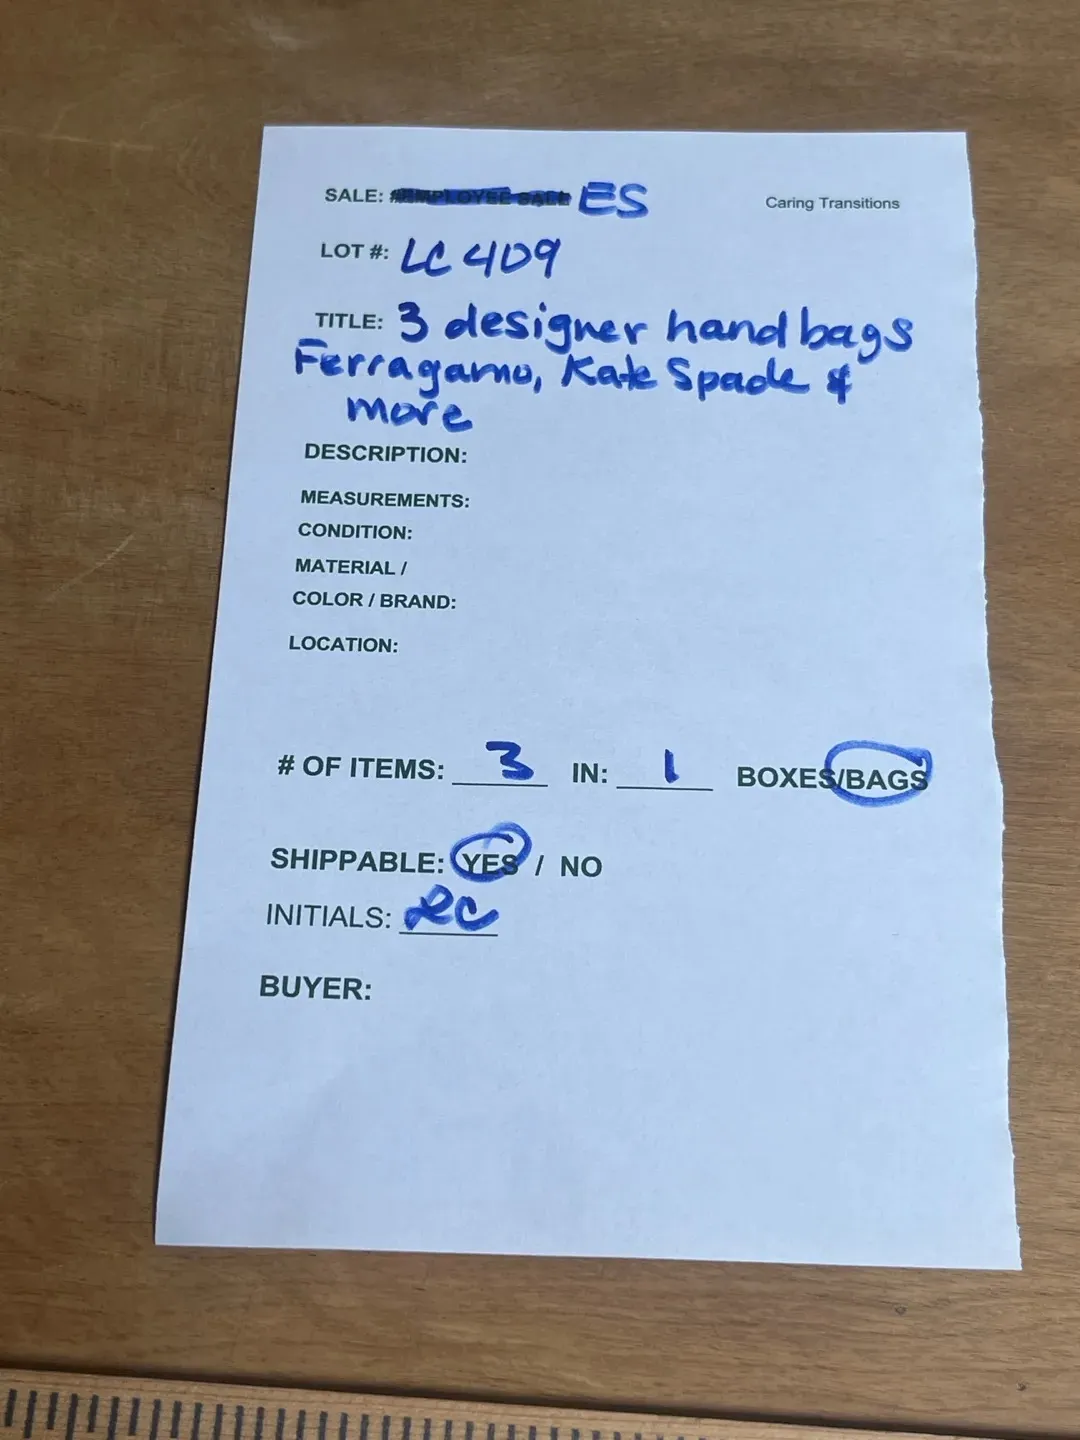 SALE: #EMPLOYEE SALE ES
Caring Transitions
LOT #: LC 409
TITLE: 3 designer handbags
Ferragamo, Kate Spade &
more
DESCRIPTION:
MEASUREMENTS:
CONDITION:
MATERIAL /
COLOR / BRAND:
LOCATION:
# OF ITEMS: 3 IN: 1 BOXES/BAGS
SHIPPABLE: YES / NO
INITIALS: RC
BUYER: